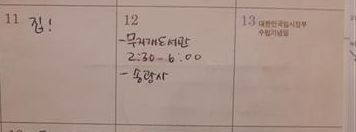 11 집!
12
-무지개도서관
2:30-6:00
- 송광사
13 대한민국임시정부
수립기념일